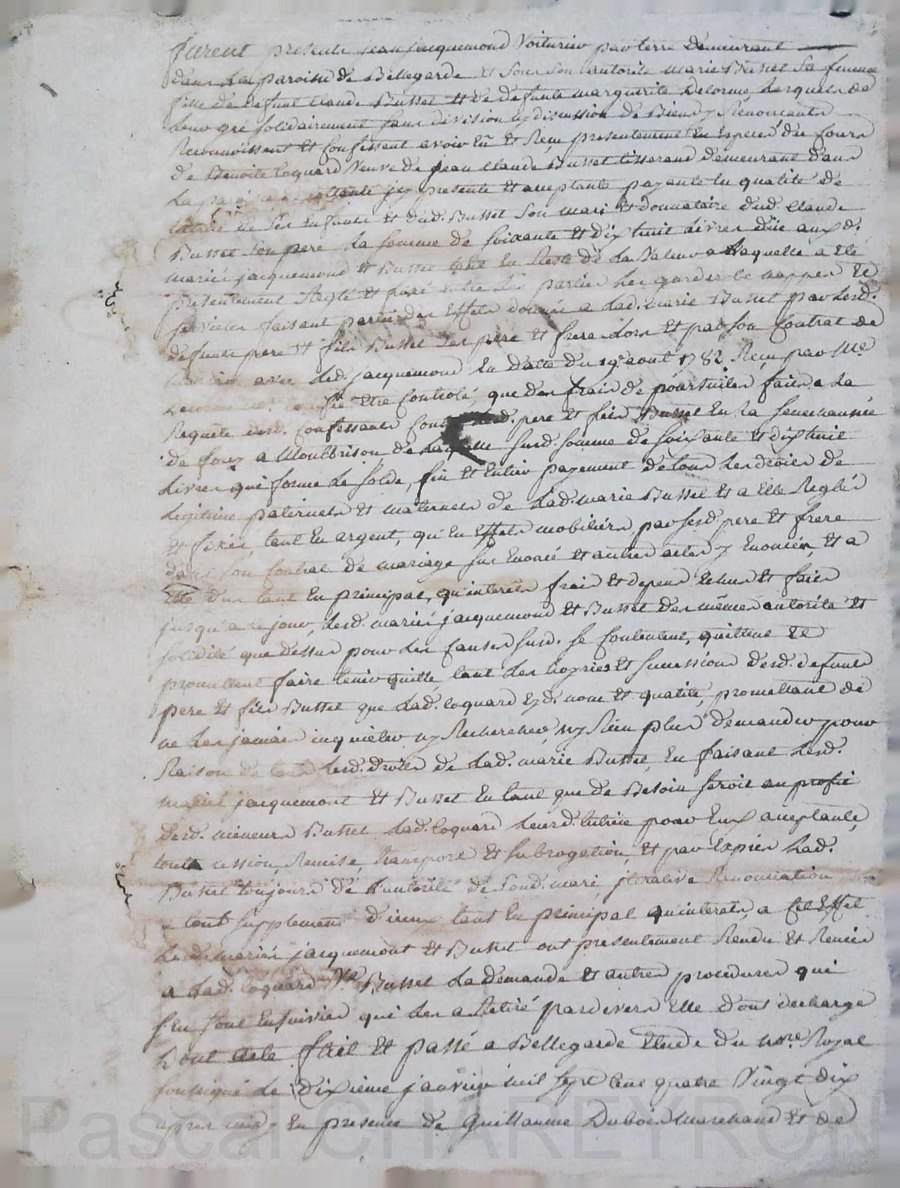 furent présents jean jacquemond Voiturier par terre demeurant
dans la paroisse de Bellegarde et sous son autorité marie Busset sa femme
fille de defunt Claude Busset et de defunte marguerite Delorme, lesquels de
leur gré solidairement sans division ny discussion de Biens y Renonceants
Reconnoissent et confessent avoir Eü et Reçu presentement En Especes du Cours
de Benoite Coquard Veuve de jean Claude Busset tisserand demeurant dans
la icy presente et acceptante payante En qualité de
tutrice de ses Enfants et dud. Busset son mari et donnataire dud. Claude
Busset son pere la somme de soixante et dix huit livres düe auxd.
mariés jacquemond et Busset tant En Reste de la Valeur a laquelle a Eté
presentement Reglé et fixé entre les parties les garderobe nappes Et
serviettes faisant partie des Effets donnés a lad. marie Busset par lesd.
defunts pere et fils Busset ses pere et frere lors et par son Contrat de
avec led. jacquemond En datte du 19e aout 1782. Reçu par Me
Contrôlé, que des frais de poursuites faites a la
Requête desd. Confessants pere et fils Busset En la senechaussée
de forez a Montbrison de laquelle susd. somme de soixante et dix huit
livres qui forme le solde, fin et Entier payement de tous les droits de
legitime paternels et maternels de lad. marie Busset et a Elle Reglés
et fixés, tant En argent, qu'En Effets mobiliers par lesd. pere et frere
dans son Contrat de mariage sus Enoncé et autres actes y Enoncés, et a
Elle dus tant En principal, qu'interêts frais Et depens Echus Et faits
jusqu'a ce jour, lesd. mariés jacquemond Et Busset des mêmes autorité et
solidité que dessus pour les causes susd. se Contentent, quittent Et
promettent faire tenir quitte tant les hoyries et successions desd. defunts
pere Et fils Busset que lad. Coquard Eyd. nom et qualité, promettant de
ne les jamais inquieter ny Rechercher, ny Rien plus demander pour
Raison de tous lesd. droits de lad. marie Busset, En faisant lesd.
mariés jacquemont Et Busset En tant que de Besoin seroit au profit
desd. mineurs Busset lad. Coquard leurd. tutrice pour Eux acceptante,
toute cession, Remise, transport Et subrogation, Et par Exprès lad.
Busset toujours de l'autorité de sond. mari Renonciation
a tout supplement d'iceux tant En principal qu'interets, a Cet Effet
lesd. mariés jacquemont Et Busset ont presentement Rendu Et Remis
a lad. Coquard Ve Busset la demande Et autres procedures qui
s'En sont Ensuivies qui les a Retiré pardivers Elle dont decharge
Dont acte fait Et passé a Bellegarde Etude du nore Royal
soussigné le dixieme janvier mil sept Cent quatre Vingt dix
après midy En presence de Guillaume Dubois Marchand Et de
Pascal CHAREYRON